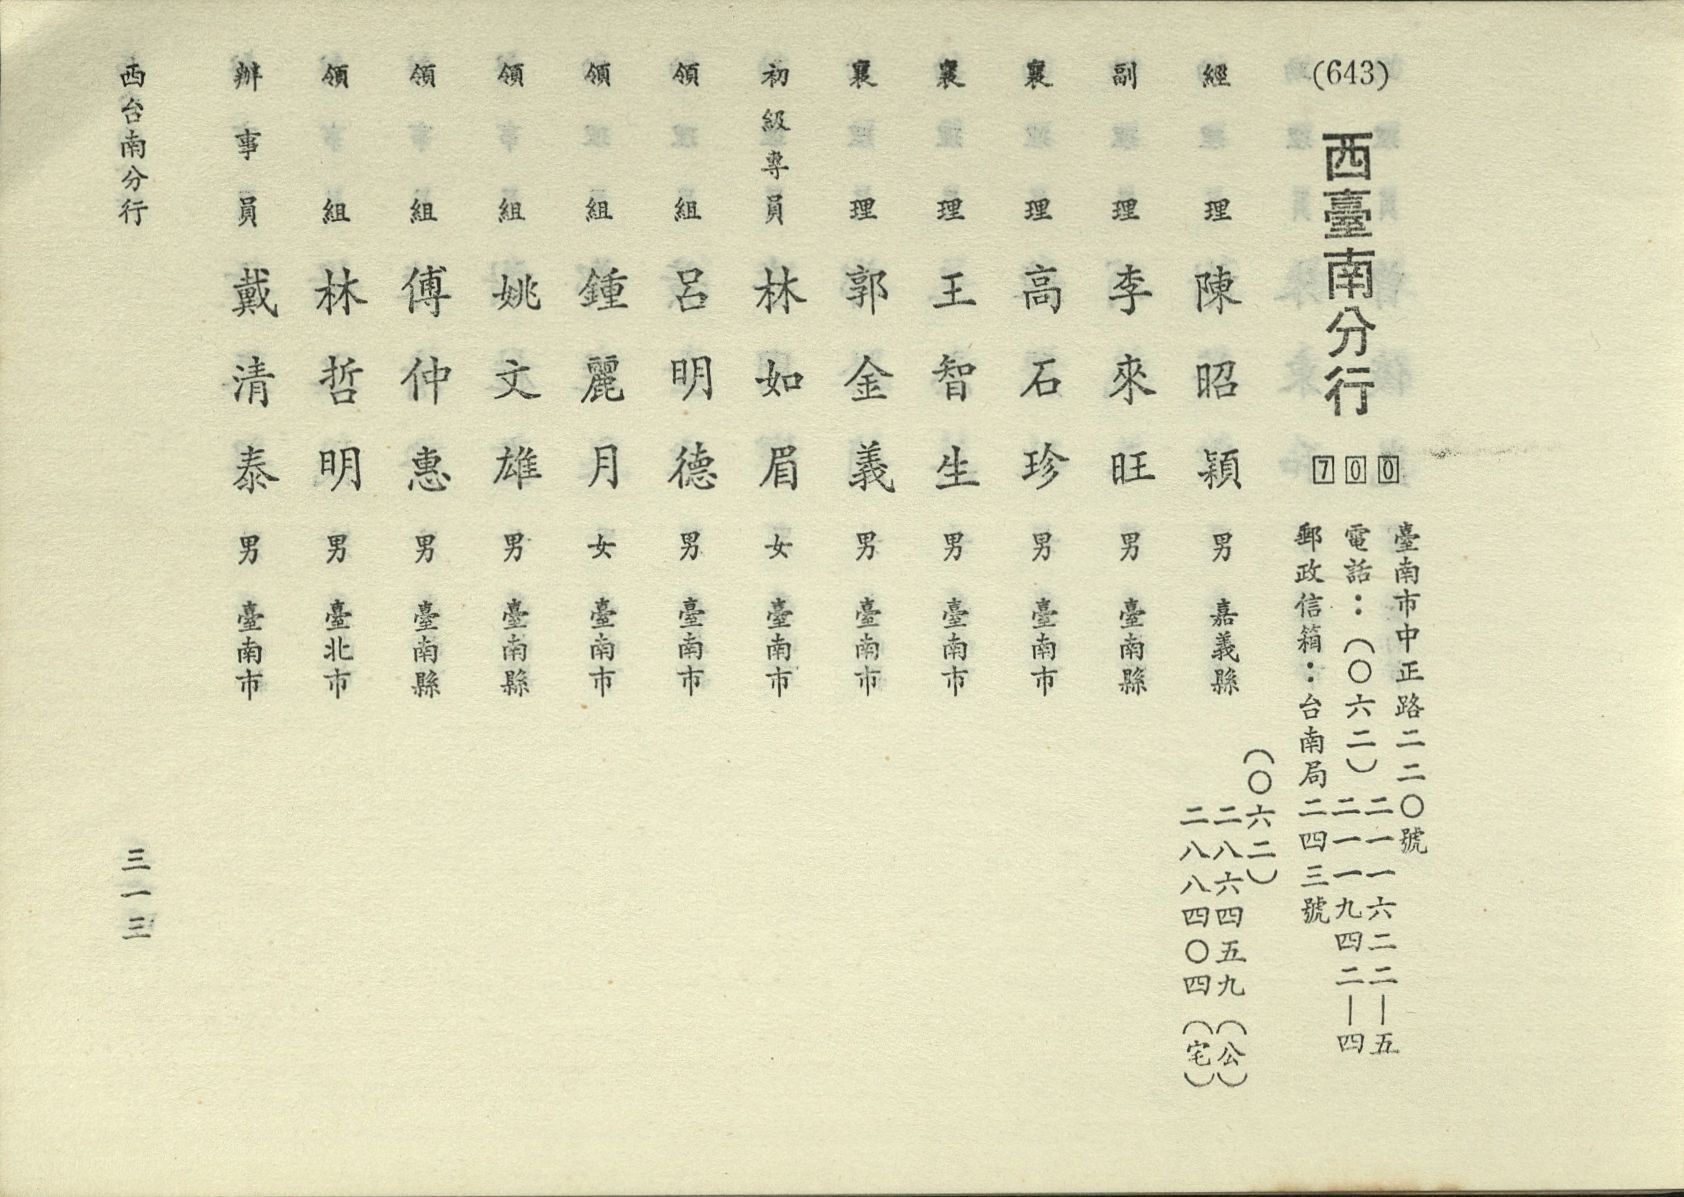 (643)
西臺南分行
700
臺南市中正路二二〇號
電話：（〇六二）二一一六二二｜五
二一一九四二｜四
郵政信箱：台南局二四三號
經理 陳昭穎 男 嘉義縣 （〇六二）
二八六四五九（公）
二八八四〇四（宅）
副理 李來旺 男 臺南縣
襄理 高石珍 男 臺南市
襄理 王智生 男 臺南市
襄理 郭金義 男 臺南市
初級專員 林如眉 女 臺南市
領組 呂明德 男 臺南市
領組 鍾麗月 女 臺南市
領組 姚文雄 男 臺南縣
領組 傅仲惠 男 臺南縣
領組 林哲明 男 臺北市
辦事員 戴清泰 男 臺南市
西台南分行
三一三